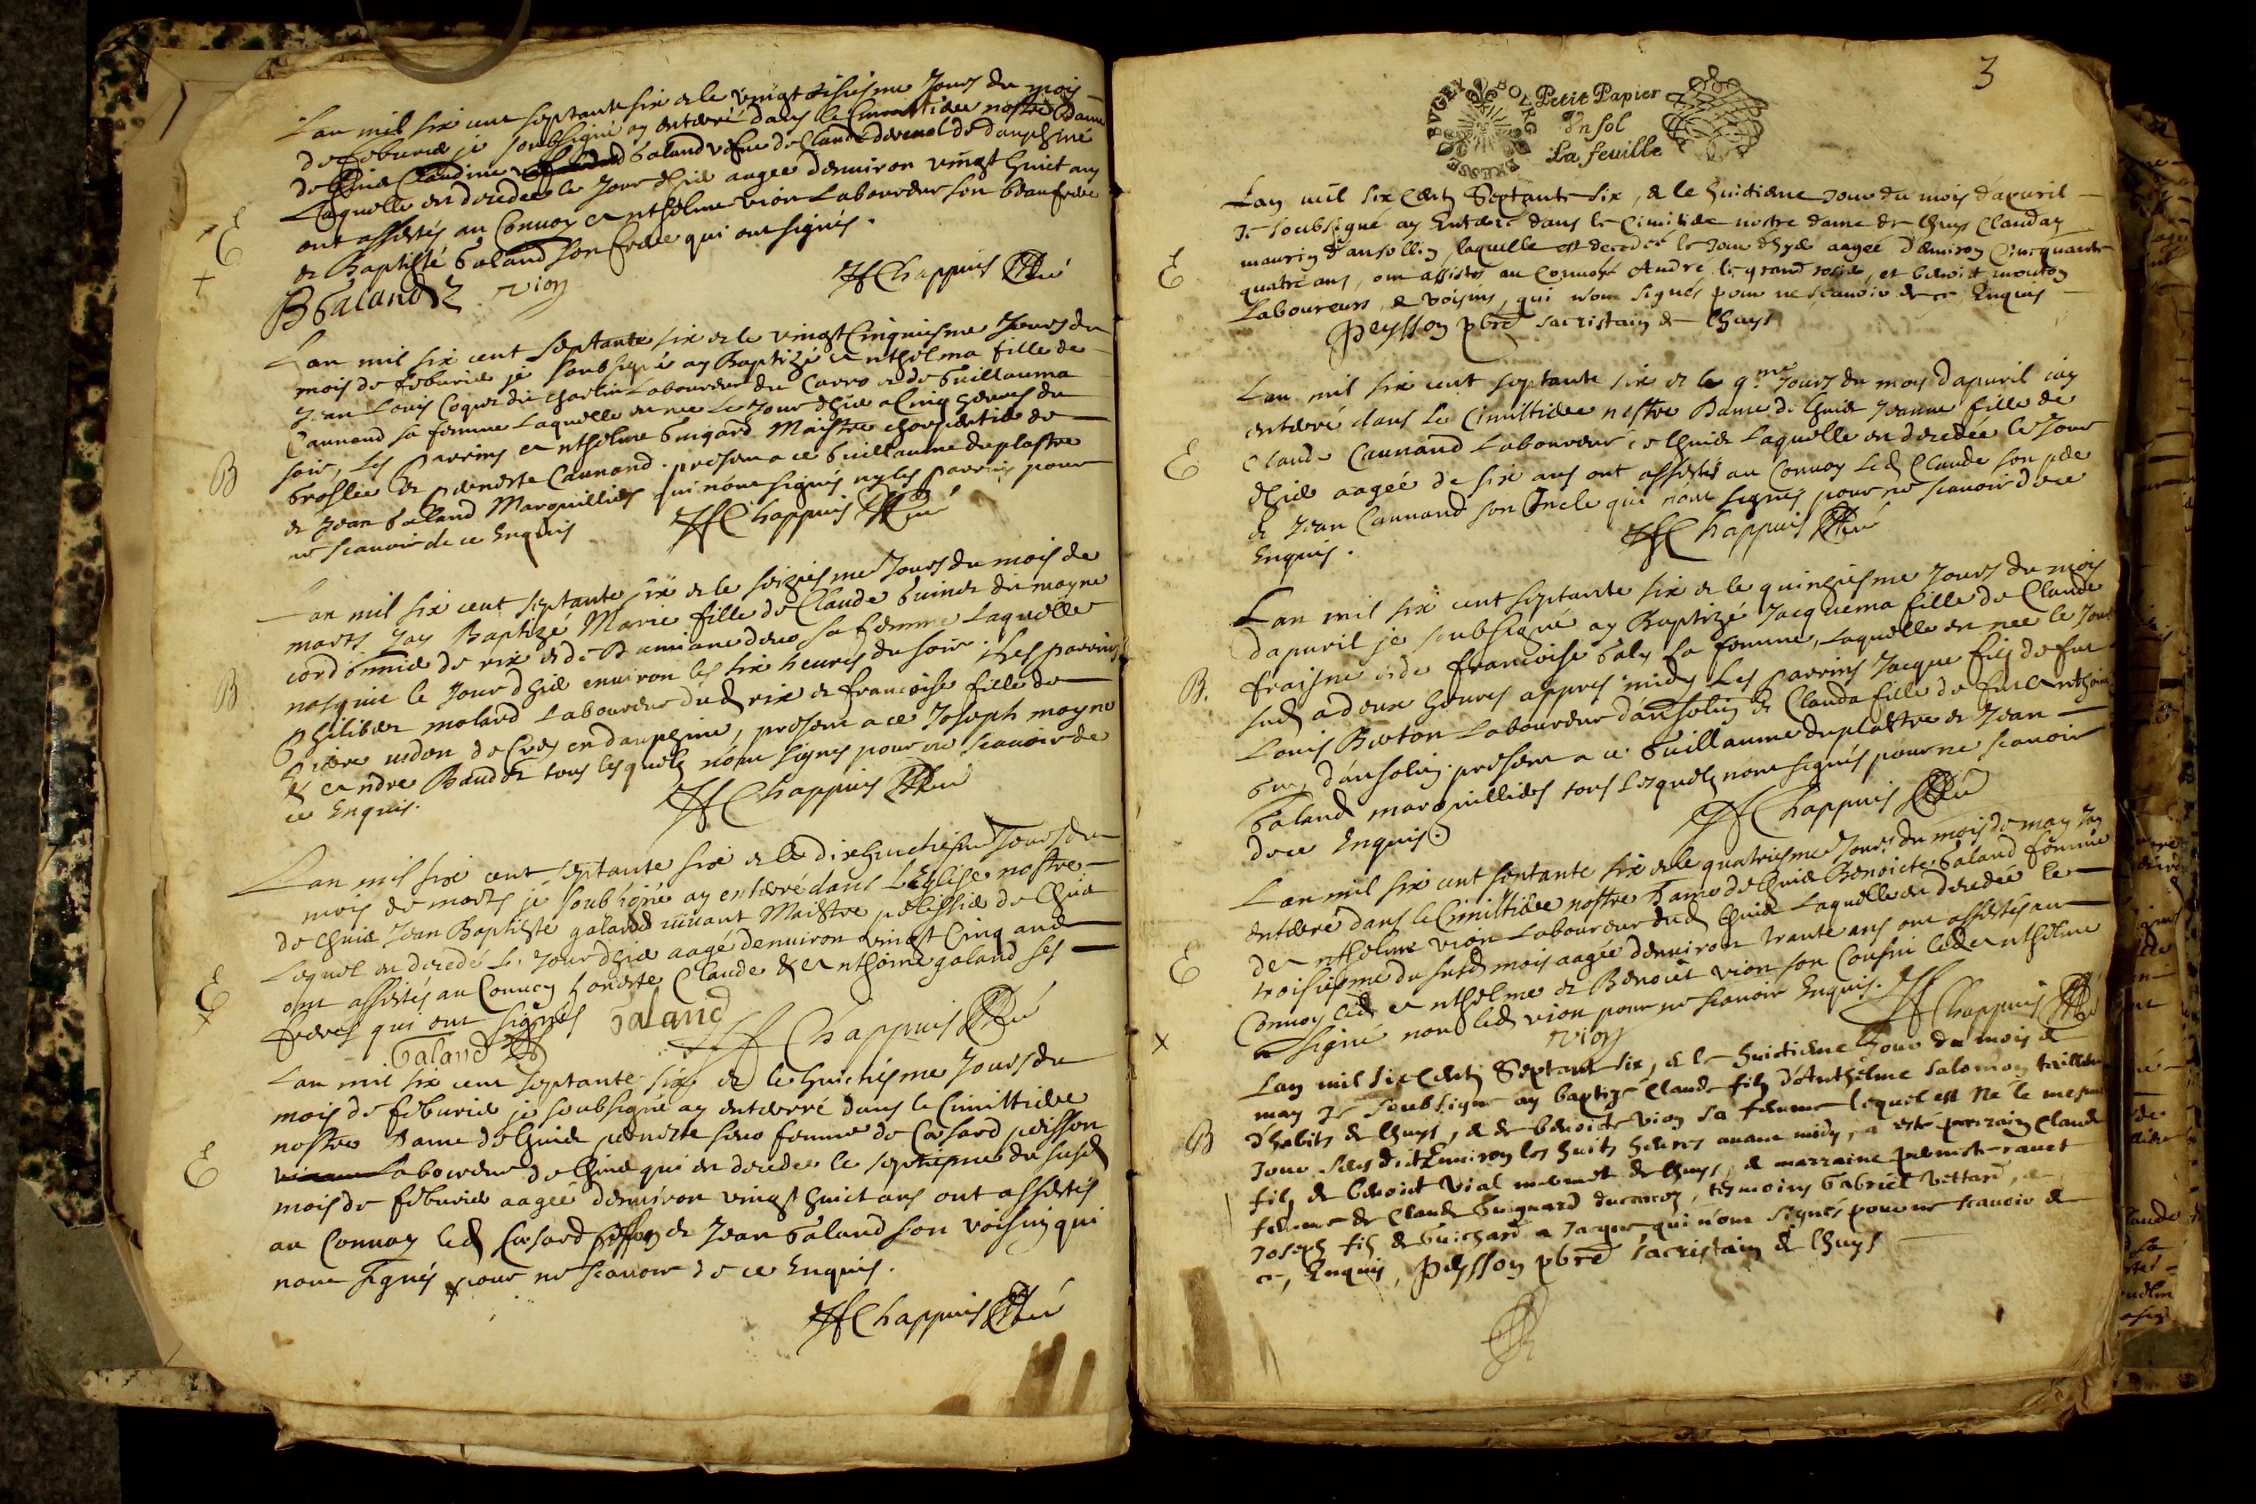 Lan mil six cent septante six et le vingt Jours du mois
de feburier je soubsigné ay enterré dans le Cimittiere nostre Dame
de Chuis Claudine Galand vefve de Claude de dauphiné
Laquelle est decedee le Jour dhier aagee denuiron vingt huict ans
ont assistés au Conuoy Anthelme vion Laboureur son beaufrere
et Baptiste Galand son frere qui ont signés.
BGaland vion JfChappuis Curé
Lan mil six cent septante six et le vingt Cinquiesme Jours du
mois de feburier je soubsigné ay Baptizé Anthelma fille de
Jean Louis Coquet dit Charlin Laboureur du Carro et de Guillauma
Caunand sa femme Laquelle est nee Le Jour dhier a Cinq heures du
soir, Les parrins Anthelme Guigard Maistre charpentier de
Groslee et pernette Caunand. present a ce Guillaume duplastre
et Jean Galand Marguilliers qui nont signés ny les parrins pour
ne scauoir de ce Enquis JfChappuis Curé
Lan mil six cent septante six et le seiziesme Jours du mois de
mars Jay Baptizé Marie fille de Claude Guinet dit mayne
cordonnier de rix et de Damiane sa femme Laquelle
nasquit le Jour dhier enuiron les six heures du soir. Les parrins
Philibert molard Laboureur dud rix et francoise fille de
pierre de Crés en dauphine, present a ce Joseph mayne
et Andre Baudet tous lesquelz nont signes pour ne scauoir de
ce Enquis. JfChappuis Curé
Lan mil six cent septante six et le dixhuictiesme Jours du
mois de mars je soubsigné ay enterré dans L'Eglise nostre
de Chuis Jean Baptiste galand viuant Maistre de Chuis
Lequel est decedé Le Jour dhier aagé denuiron vingt Cinq ans
ont assistés au Conuoy honeste Claude et Anthoine galand ses
freres qui ont signés Galand
Galand JfChappuis Curé
Lan mil six cent septante six et le huictiesme Jours du
mois de feburier je soubsigné ay enterré dans le Cimittiere
nostre Dame de Chuis pernette femme de Cesard peisson
Laboureur de Chuis qui est decedee le septiesme du susd
mois de feburier aagee denuiron vingt huict ans ont assistés
au Conuoy led Cesard et Jean Galand son voisin qui
nont signés pour ne scauoir de ce Enquis.
JfChappuis Curé
3
BVGEY BOVRG BRESSE
Petit Papier
Vn sol
La feuille
Lan mil six Cents Septante six, & le huictieme Jour du mois dapuril
Je soubsigné ay Enterré dans le Cimitiere nostre dame de Chuys Clauday
maurin dansollin, laquelle est decedee le Jour dhyer aagee d'enuiron Cinquante
quatre ans, ont assistes au Conuoy Andre le grand, et benoit mouton
Laboureurs & voisins, qui n'ont signés pour ne scauoir de ce Enquis
Peysson pbre sacristain de Chuys
Lan mil six cent septante six et le 9.me Jours du moy dapuril jay
enterré dans Le Cimittiere nostre Dame de Chuis Jeanne fille de
Claude Caunand Laboureur Chuis Laquelle est decedée le Jour
dhier aagée de six ans ont assistés au Conuoy Led Claude son pere
et Jean Caunand son Oncle qui nont signes pour ne scauoir de ce
Enquis. JfChappuis Curé
Lan mil six cent septante six et le quinziesme Jours du mois
dapuril je soubsigné ay Baptizé Jacquema fille de Claude
fraisne et de francoise Galy sa femme, Laquelle est nee le Jour
sud a deux heures appres midy Les parrins Jacque filz de feu
Louis Breton Laboureur dansolin et Clauda fille de feu Anthoine
Guy dansolin. present a ce Guillaume duplastre et Jean
Galand marguilliers tous Lesquelz nont signés pour ne scauoir
de ce Enquis. JfChappuis Curé
Lan mil six cent septante six et le quatriesme Jours du mois de may Jay
enterré dans le Cimittiere nostre Dame de Chuis Benoicte Galand femme
de Anthelme vion Laboureur dud Chuis Laquelle est decedée le
troisiesme du susd mois aagée denuiron trante ans ont assistés au
Conuoy led Anthelme et Benoit vion son Cousin led Anthelme
a signé non led vion pour ne scauoir Enquis.
vion JfChappuis Curé
Lan mil six Cents Septante six, & le huictieme Jour du mois de
may Je soubsigné ay baptizé Claude filz d'Anthelme Salomon tailleur
d'habits de Chuys, & de benoicte vion sa femme lequel est Né le mesme
Jour susdict Enuiron les huits heures auant midy, a esté parrain Claude
filz de benoict Vial de Chuys, & marraine pernette rauet
femme de Claude Guignard, tesmoins Gabriel Vettard, &
Joseph filz de Guichard a Jacque qui n'ont signés pour ne scauoir de
ce, Enquis, Peysson pbre sacristain de Chuys